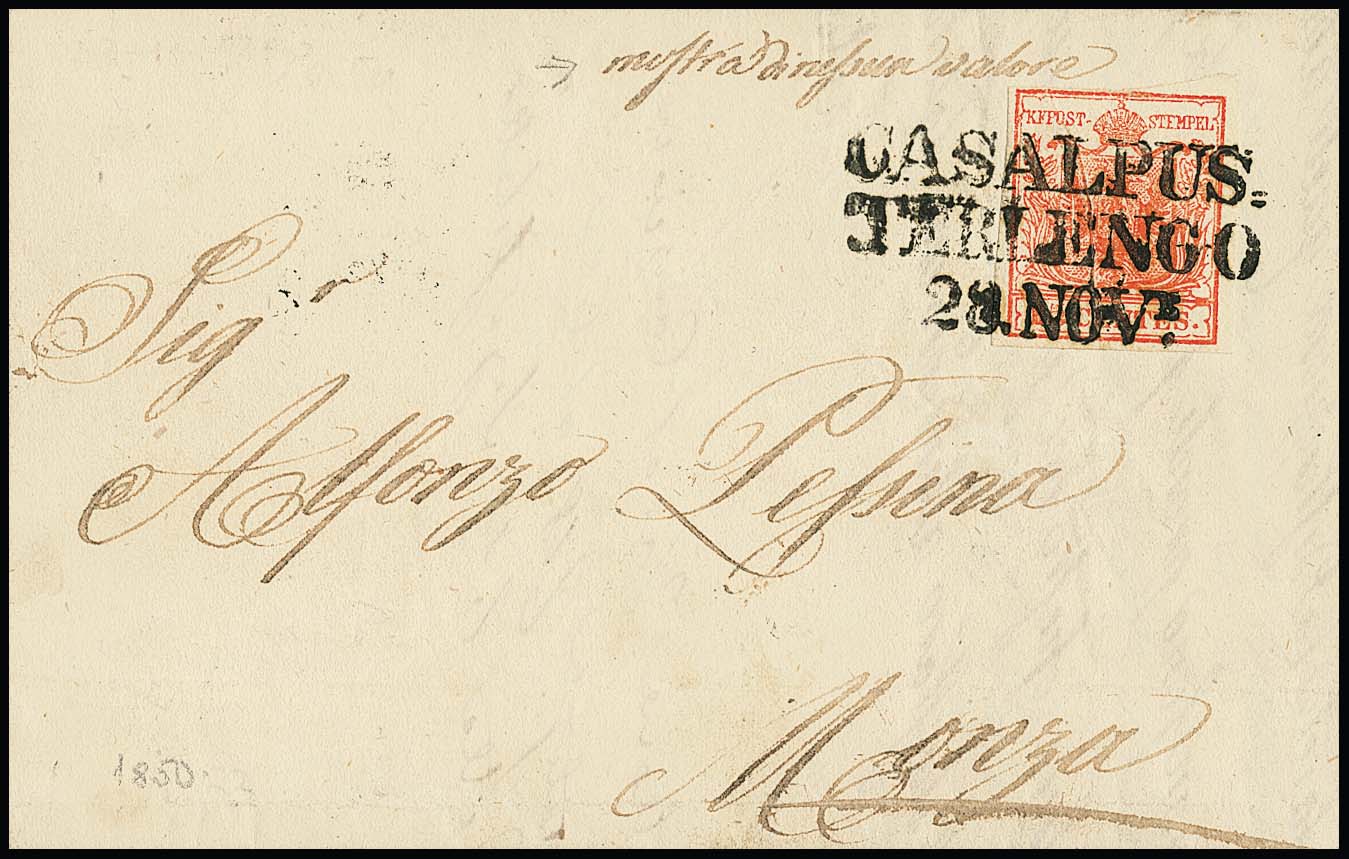 mostra di nessun valore
KK POST-STEMPEL
CASALPUS:
TERLENGO
28. NOV.E
CENTES.
Sig.r
Alfonzo Pessina
Monza
1850